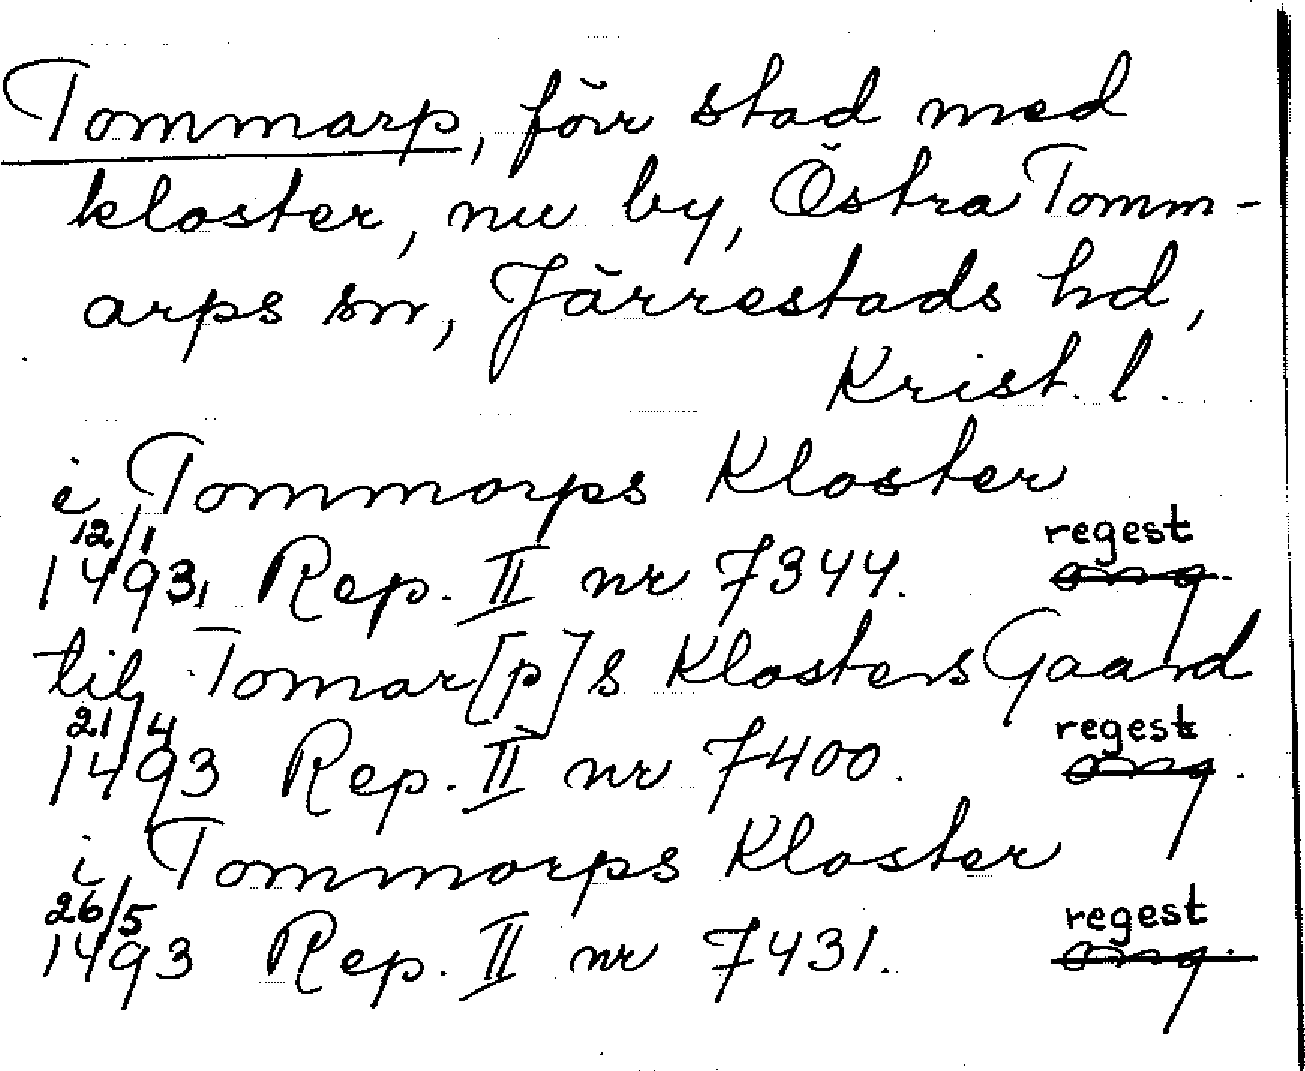 Tommarp, förr stad med
kloster, nu by, Östra Tomm-
arps sn, Järrestads hd,
Krist. l.
i Tommorps Kloster
12/1 regest
1493, Rep. II nr 7344. omg.
til Tomar[p]s Klosters Gaard
21/4 regest
1493 Rep. II nr 7400. omg.
i Tommorps Kloster
26/5 regest
1493 Rep. II nr 7431. omg.